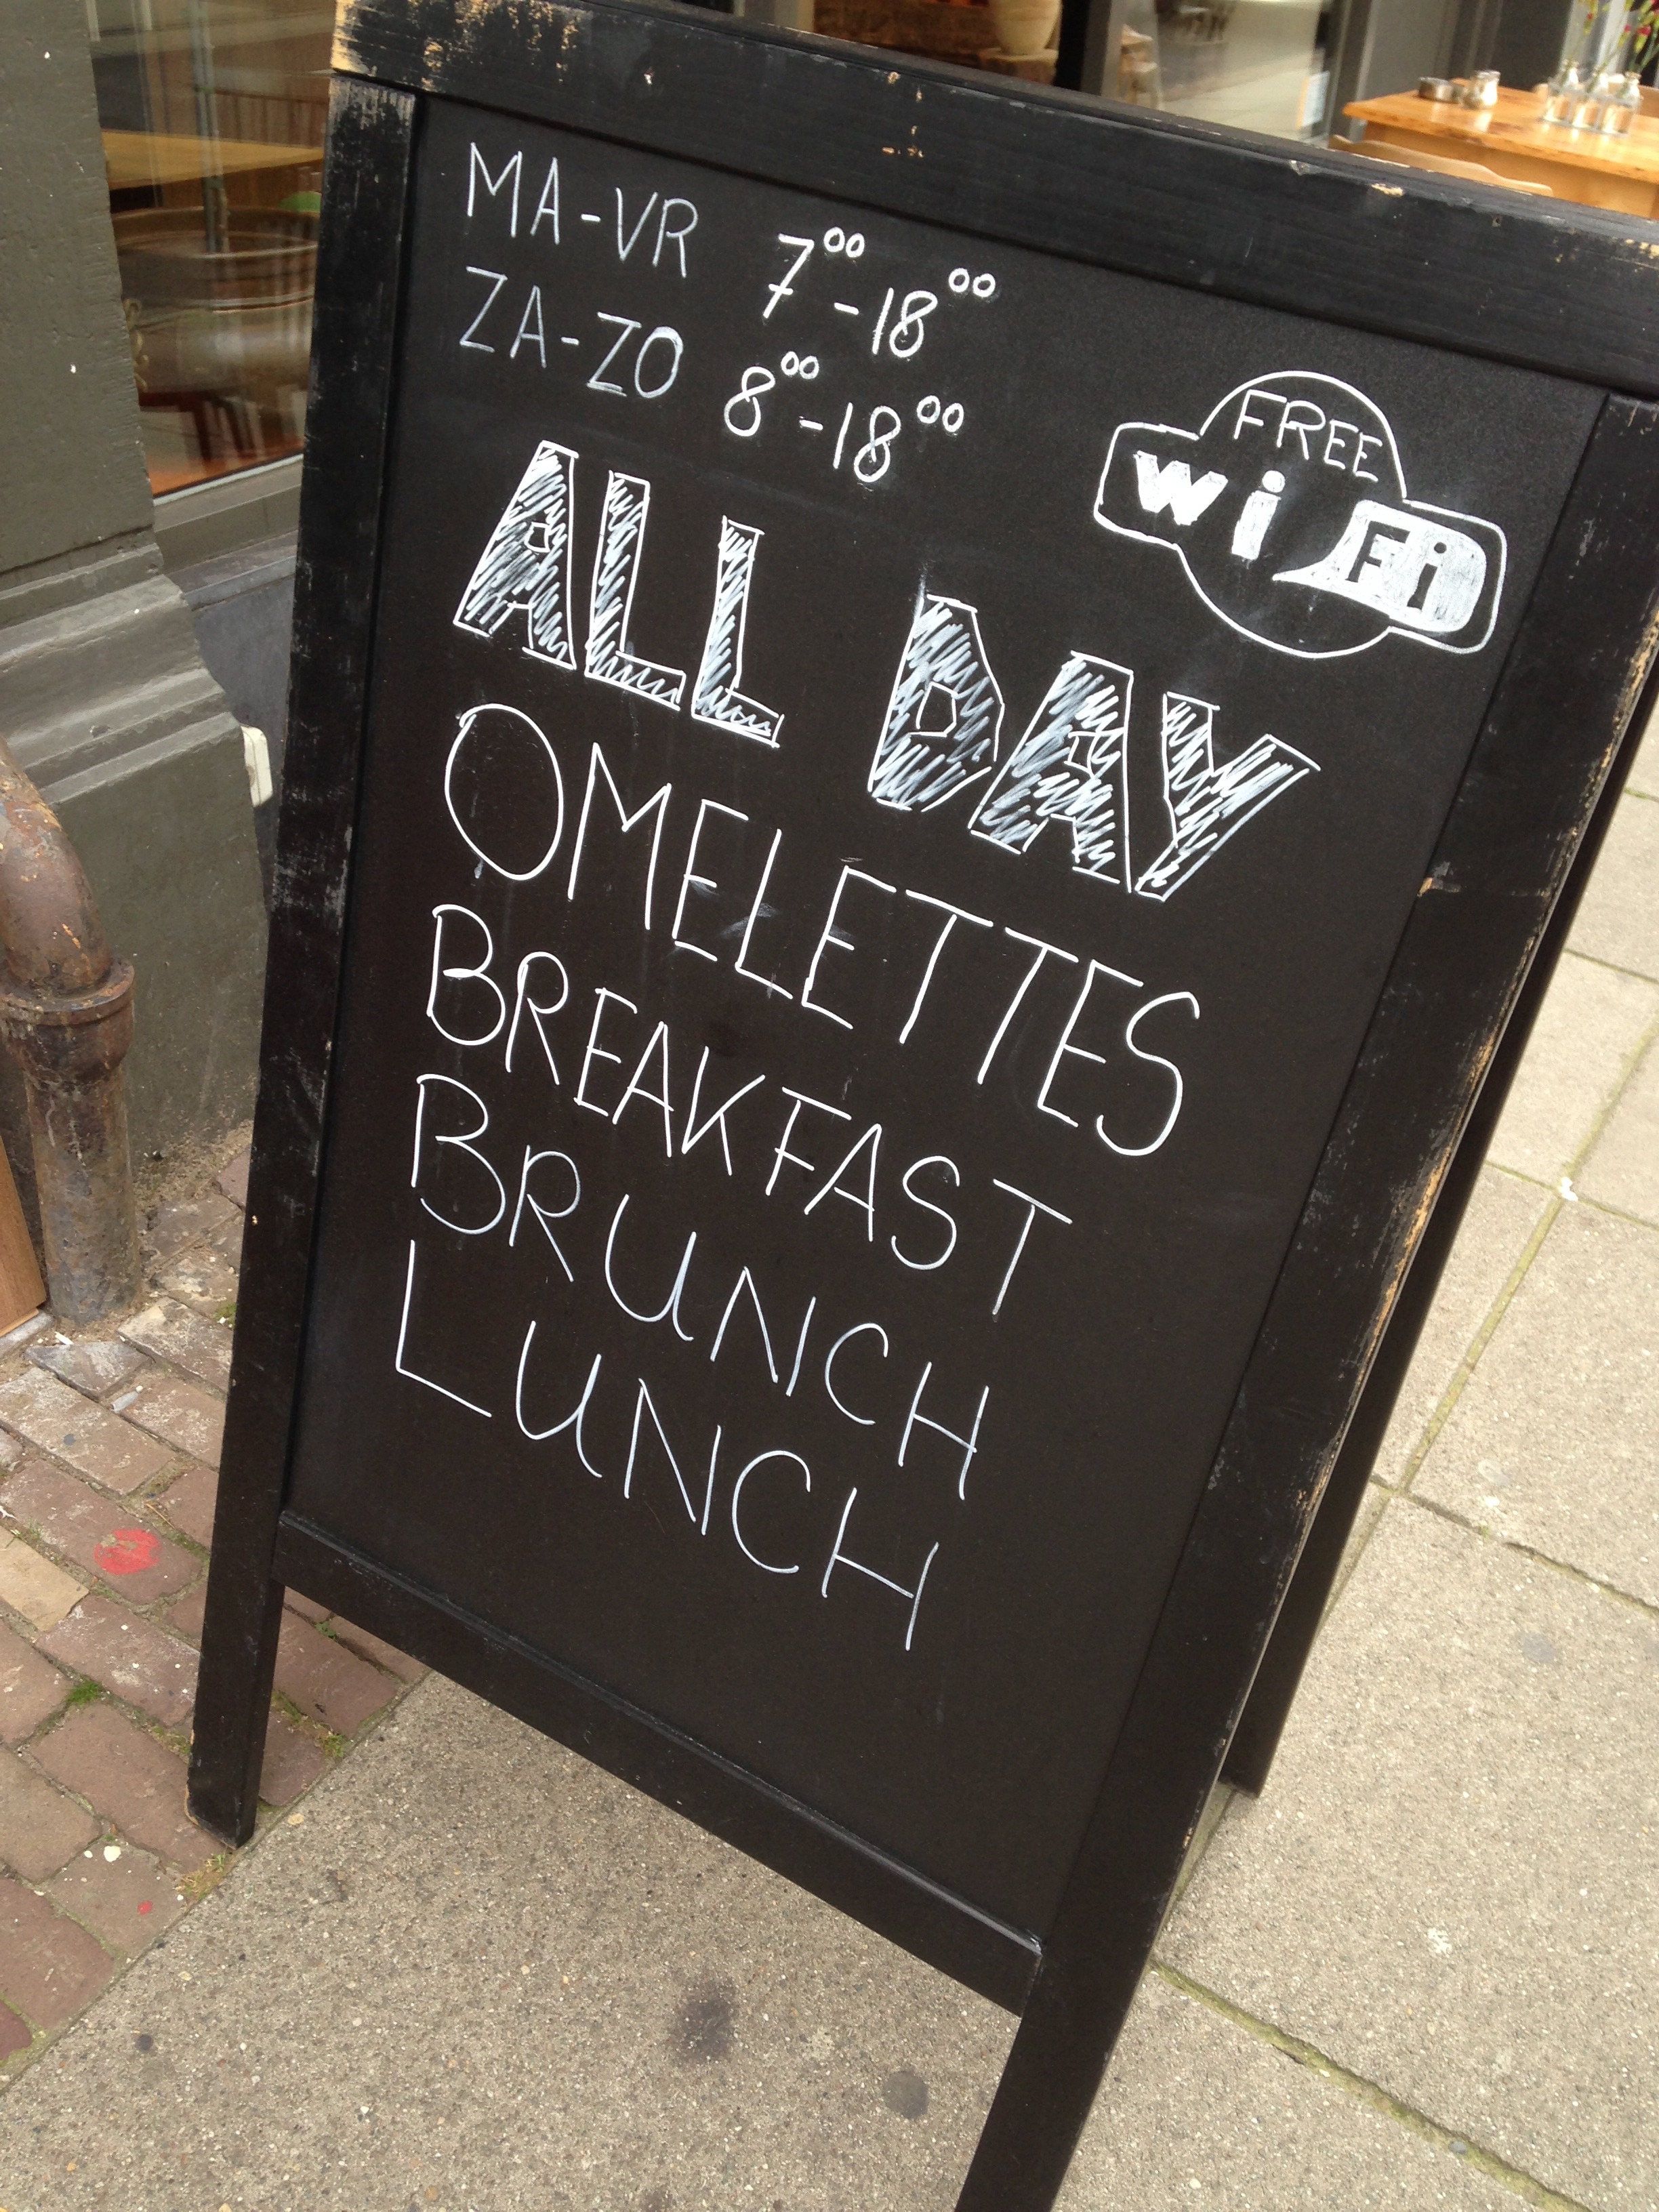 MA-VR 7⁰⁰-18⁰⁰
ZA-ZO 8⁰⁰-18⁰⁰
FREE
WiFi
ALL DAY
OMELETTES
BREAKFAST
BRUNCH
LUNCH